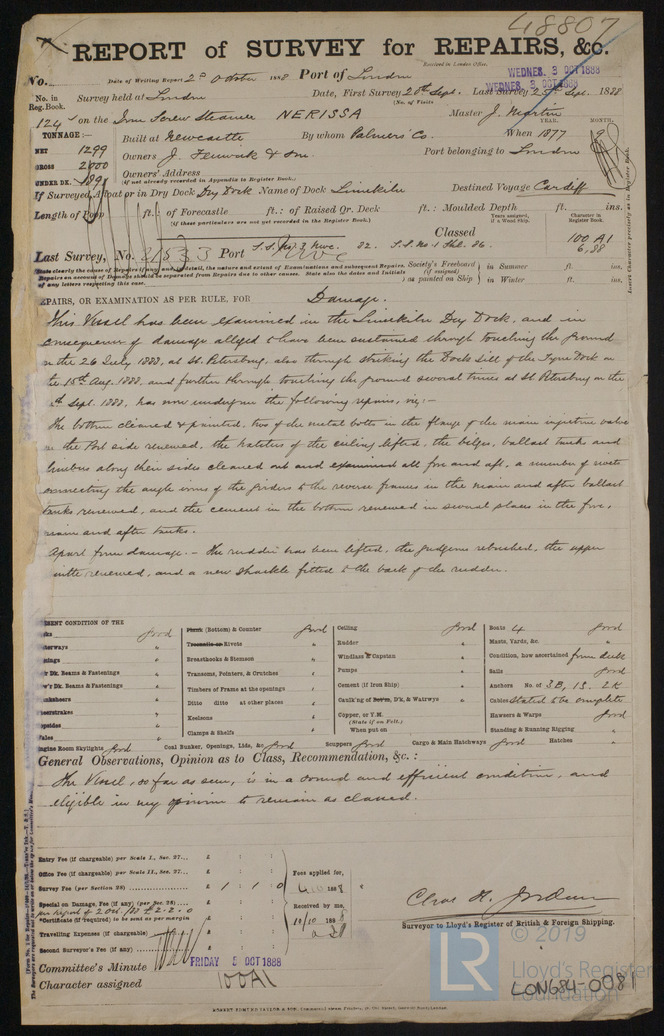 48807
REPORT of SURVEY for REPAIRS, &c.
Received in London Office,
No. Date of Writing Report 2nd October 1888 Port of London
WEDNES. 3 OCT 1888
WEDNES. 3 OCT 1888
No. in Reg. Book. Survey held at London Date, First Survey 20th Sept. Last Survey 25th Sept. 1888
(No. of Visits
124 on the Iron Screw Steamer NERISSA Master J. Martin
TONNAGE:—
YEAR. MONTH.
NET 1299 Built at Newcastle By whom Palmers' Co. When 1877 9
GROSS 2000 Owners J. Fenwick & Son Port belonging to London
UNDER DK. 1891 Owners' Address
(if not already recorded in Appendix to Register Book.)
If Surveyed Afloat or in Dry Dock Dry Dock Name of Dock Limekiln Destined Voyage Cardiff
Length of Poop ft.: of Forecastle ft.: of Raised Qr. Deck ft.: Moulded Depth ft. ins.
(if these particulars are not yet recorded in the Register Book.)
Years assigned, if a Wood Ship.
Character in Register Book.
Classed
Last Survey, No. 21533 Port Nwc
S.S. No. 3 Nwc. 82. S.S. No. 1 Shl. 86.
100 A1
6,88
State clearly the cause of Repairs if any and in detail, the nature and extent of Examinations and subsequent Repairs.
Repairs on account of Damage should be separated from Repairs due to other causes. State also the dates and initials of any letters respecting this case.
Society's Freeboard (if assigned) as painted on Ship
in Summer ft. ins.
in Winter ft. ins.
Insert Character precisely as in Register Book.
EPAIRS, OR EXAMINATION AS PER RULE, FOR Damage.
This Vessel has been examined in the Limekiln Dry Dock, and in
consequence of damage alleged to have been sustained through touching the ground
on the 26 July 1888, at St. Petersburg, also through striking the Dock Sill of the Tyne Dock on
the 15th Aug. 1888, and further through touching the ground several times at St. Petersburg on the
Sept. 1888, has now undergone the following repairs, viz:-
The bottom cleaned & painted, two of the metal bolts in the flange of the main injection valve
on the Port side renewed, the hatches of the ceiling lifted, the bilges, ballast tanks and
limbers along their sides cleared out and examined all fore and aft, a number of rivets
connecting the angle irons of the girders to the reverse frames in the main and after ballast
tanks renewed, and the cement in the bottom renewed in several places in the fore,
main and after tanks.
Apart from damage.- The rudder has been lifted, the gudgeons rebushed, the upper
pintle renewed, and a new shackle fitted to the back of the rudder.
SENT CONDITION OF THE
ks good
terways "
mings "
er Dk. Beams & Fastenings "
w'r Dk. Beams & Fastenings "
nksheers "
heerstrakes "
opsides "
ales "
Engine Room Skylights good
Plank (Bottom) & Counter good
Treenails or Rivets "
Breasthooks & Stemson "
Transoms, Pointers, & Crutches "
Timbers of Frame at the openings "
Ditto ditto at other places "
Keelsons "
Clamps & Shelfs "
Coal Bunker, Openings, Lids, &c. good
Ceiling good
Rudder "
Windlass & Capstan "
Pumps "
Cement (if Iron Ship) "
Caulk'ng of Bottom, D'k, & Watrwys "
Copper, or Y.M.
(State if on Felt.)
When put on
Scuppers good
Boats 4 good
Masts, Yards, &c. "
Condition, how ascertained from deck
Sails good
Anchors No. of 3B, 1S, 2K
Cables stated to be complete
Hawsers & Warps good
Standing & Running Rigging "
Cargo & Main Hatchways good Hatches "
General Observations, Opinion as to Class, Recommendation, &c.:
The Vessel, so far as seen, is in a sound and efficient condition, and
eligible in my opinion to remain as classed.
Entry Fee (if chargeable) per Scale I., Sec. 27... £ : :
Office Fee (if chargeable) per Scale II., Sec. 27... £ : :
Survey Fee (per Section 28) £ 1 : 1 : 0
Special or Damage, Fee (if any) (per Sec. 28) £ : :
per Report of 2 Oct. /88 £2-2-0
Certificate (if required) to be sent as per margin
Travelling Expenses (if chargeable) £ : :
Second Surveyor's Fee (if any) £ : :
Fees applied for,
1888
Received by me,
10/10 1888
Chas. H. Jordan
Surveyor to Lloyd's Register of British & Foreign Shipping.
Committee's Minute FRIDAY 5 OCT 1888
Character assigned 100A1
LR
© 2019
Lloyd's Register
Foundation
LON684-0081